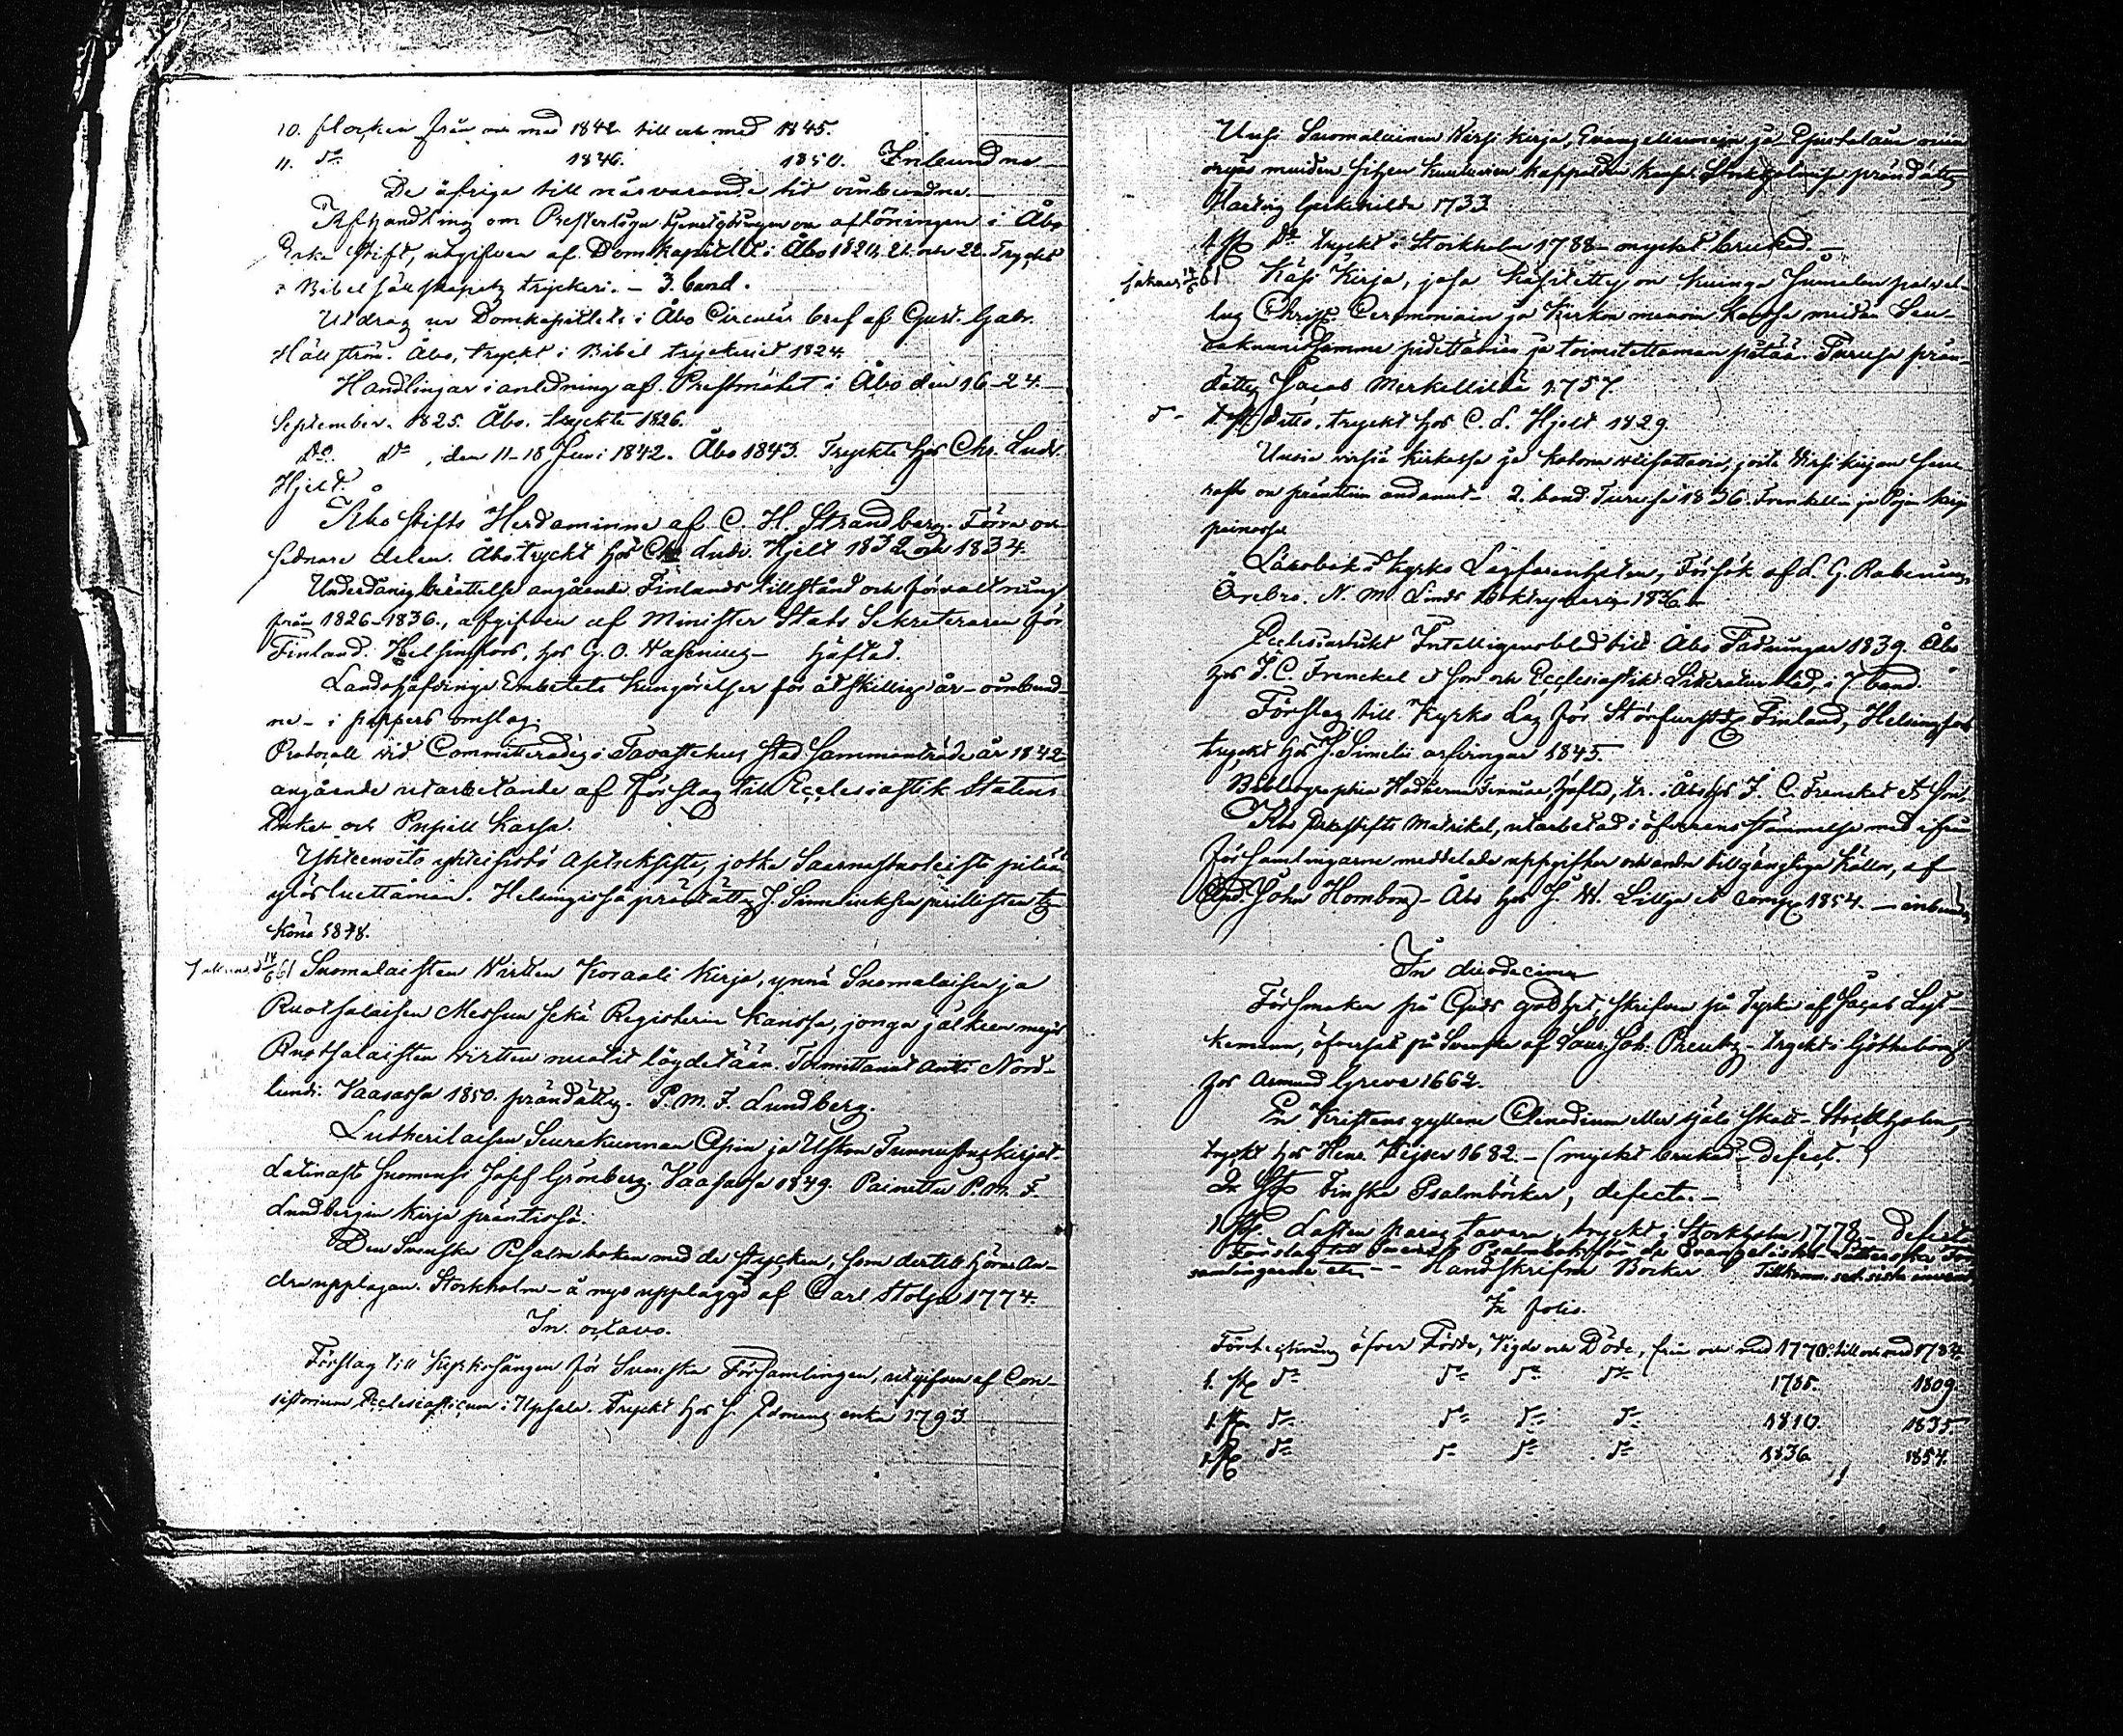 10. flocken från med 1842 till och med 1845.
11. d:o 1846. 1850. Inbundne
De öfriga till närvarande tid oinbundne.
Afhandling om Presterliga tjenstgöringen om aflöningen i Åbo
Erke Stift, utgifven af Domkapitlet i Åbo 1820, 21 och 22. Tryckt
i Bibel sällskapets tryckeri. - 3. band.
Utdrag ur Domkapitlets i Åbo Circulär bref af Gust. Gabr.
Hällström. Åbo, tryckt i Bibel tryckeriet 1824.
Handlingar i anledning af Prestmötet i Åbo den 16-24.
September. 1825. Åbo. tryckte 1826.
D:o d:o, den 11-18 Juni 1842. Åbo 1843. Tryckte hos Chr. Ludv.
Hjelt.
Åbo Stifts Herdaminne af C. H. Strandberg. Förra och
sednare delen. Åbo tryckt hos Chr Ludv. Hjelt 1832 och 1834.
Underdånig berättelse angående Finlands tillstånd och förvaltning
från 1826-1836., afgifven af Minister Stats Sekreteraren för
Finland. Helsingfors, hos G. O. Wasenius - häftad.
Landshöfdinge Embetets Kungörelser för åtskillige år - oinbund-
ne - i pappers omslag.
Protocoll vid Committerades i Tavastehus Stad Sammanträde år 1842
angående utarbetande af Förslag till Ecclesiastik Statens
Enke- och Pupill Kassa.
Yhteenveto yhteisistä Asetuksista, jotka Saarnastuoleista pitää
ylösluettaman. Helsingissä präntätty J. Simeliuksen perillisten ty-
könä 1848.
Saknas d 14/6 61 Suomalaisten Wirtten Koraali Kirja, ynnä Suomalaisen ja
Ruotsalaisen Messun sekä Registerin kanssa, jonga jälkeen myös
Ruotsalaisten wirtten nuotit löydetään. Toimittanut Antti Nord-
lund. Vaasassa 1850. prändätty. P. M. F. Lundberg.
Lutherilaisen Seurakunnan Opin ja Uskon Tunnustuskirjat.
Latinasta Suomensi Josef Grönberg. Vaasassa 1849. Painettu P. M. F.
Lundbergin kirja präntissä.
Den Svenska Psalmboken med de stycken, som dertill höra An-
dra upplagan. Stockholm - å nyo upplaggd af Carl Stolpe 1774.
In octavo.
Förslag till Kyrkosången för Svenska Församlingen, utgifven af Con-
sistorium Ecclesiasticum i Upsala. Tryckt hos J. Edmans enka 1793
Uusi Suomalainen Wirsi Kirja, Evangeliumein ja Epistolain
muiden siihen kuuluvien kappalden kansa. Stockholmisa prändätty
Hartvig Gerkenilda 1733
1. st D:o tryckt i Stockholm 1788 - mycket brukad. -
Saknas 14/6 61 Käsi Kirja, josa käsitetty on kuinga Jumalan palvel-
lus Christ. Ceremoniain ja Kirkon menoin kansa meidän Seu-
rakunnissamme pidettämän ja toimitettaman pitää. Turusa prän-
dätty Jacob Merkelliltä 1757.
d:o 1. st Ditto, tryckt hos C. L. Hjelt 1829.
Uusia virsiä kirkossa ja kotona veisattavia, joita Virsikirjan
on präntiin andanut - 2. band Turussa 1836. Frenkellin ja Pojan kirja
painossa.
Lärobok i Kyrko Lagfarenheten, Försök af L. G. Rabenius,
Örebro. N. M. Linds Boktryckeri 1836. -
Ecclesiastikt Intelligensblad till Åbo Tidningar 1839. Åbo
hos J. C. Frenckel & Son och Ecclesiastik Litteraturblad, i 7. band.
Förslag till Kyrko Lag för Storfurst. Finland, Helsingfors
tryckt hos J. Simelii arfvingar 1845.
Bibliographia Hodierna Fennica, häftad, tr. i Åbo hos J. C. Frenckel & Son,
Åbo Erkestifts Matrikel, utarbetad i öfverensstämmelse med ifrån
församlingarne meddelade uppgifter och andra tillgängliga källor, af
John Homborg - Åbo hos J. W. Lillja & Comp 1854. - inbunden
In duodecimo
Försmaken på Guds godhet, skrifven på Tyska af Jacob
öfversatt på Svenska af Laur. Joh. Preutz - tryckt i Götheborg
hos Amund Grefve 1664.
En Kristens gyllene Clenodium eller själs skatt - Stockholm,
tryckt hos Henr. Keijser 1682. - (mycket brukad - defect.)
2 st Finska Psalmböcker, defecta. -
1 st Lasten paras tavara, tryckt i Stockholm 1778. - defect
Förslag till Svensk Psalmbok för de Evangeliska-Lutherska för-
samlingarne etc. - - Handskrifne Böcker Tillkomn. sed. sista inven.
In folio.
Förteckning öfver Födde, Vigde och Döde, från och med 1770. till och med 1784.
1. st d:o d:o d:o d:o 1785. 1809.
1. st d:o d:o d:o d:o 1810. 1835.
1. st d:o d:o d:o d:o 1836 1854.